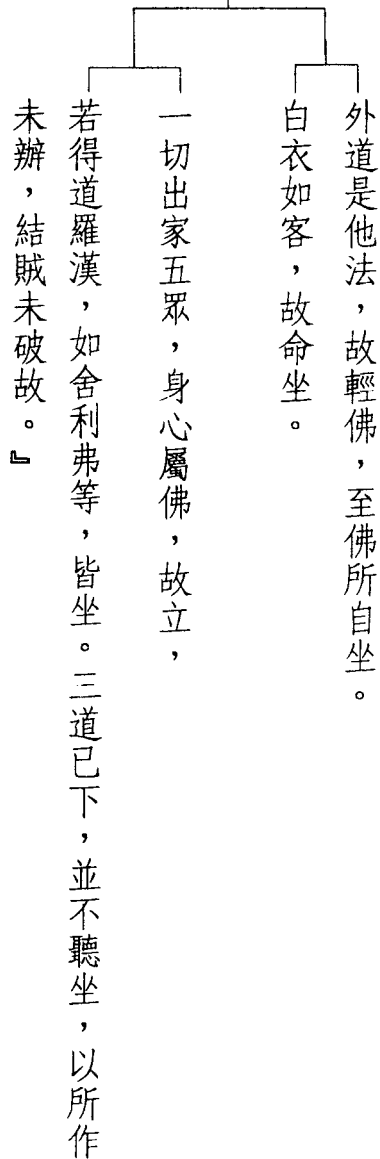 外道是他法，故輕佛，至佛所自坐。
白衣如客，故命坐。
一切出家五眾，身心屬佛，故立，
若得道羅漢，如舍利弗等，皆坐。三道已下，並不聽坐，以所作
未辦，結賊未破故。』